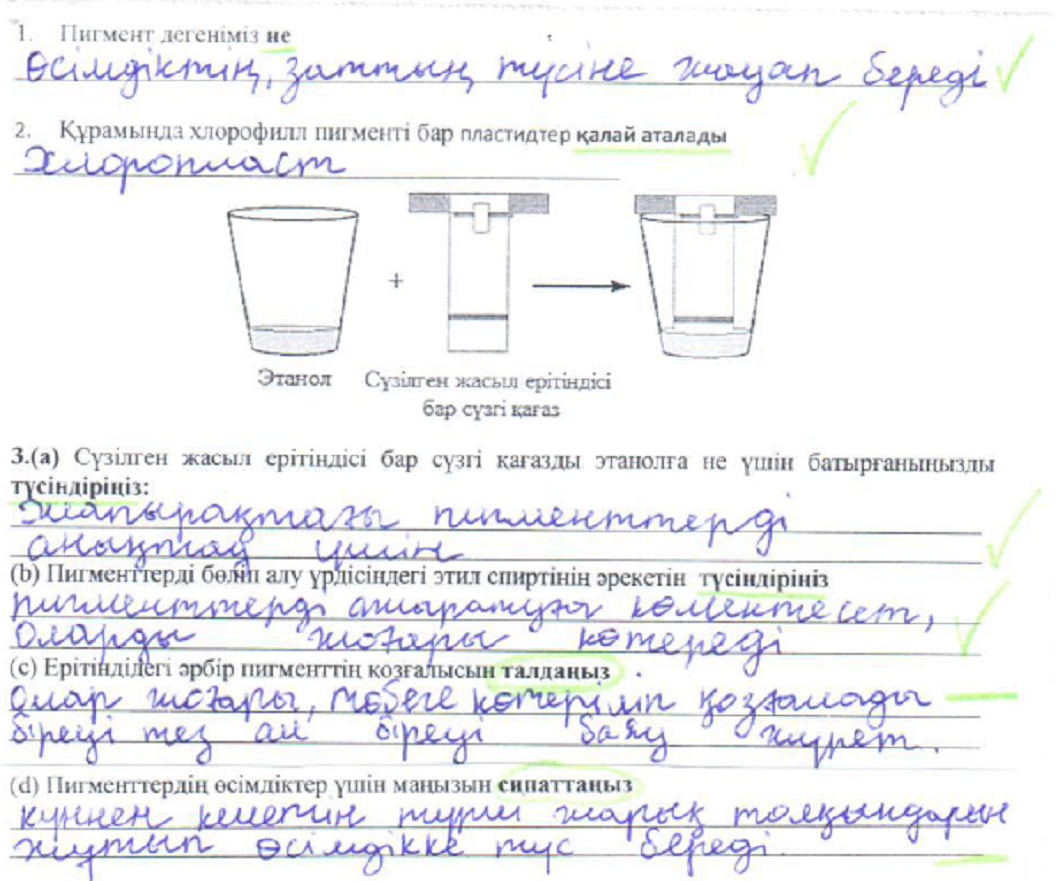 1. Пигмент дегеніміз не
Өсімдіктің, заттың түсіне жауап береді
2. Құрамында хлорофилл пигменті бар пластидтер қалай аталады
Хлоропласт
+
Этанол
Сүзілген жасыл ерітіндісі
бар сүзгі қағаз
3.(a) Сүзілген жасыл ерітіндісі бар сүзгі қағазды этанолға не үшін батырғаныңызды
түсіндіріңіз:
Жапырақтағы пигменттерді
анықтау үшін
(b) Пигменттерді бөліп алу үрдісіндегі этил спиртінің әрекетін түсіндіріңіз
пигменттерді ажыратуға көмектесет,
оларды жоғары көтереді
(c) Ерітіндідегі әрбір пигменттің қозғалысын талдаңыз
Олар жоғары, төбеге көтеріліп қозғалады
біреуі тез ал біреуі баяу жүрет.
(d) Пигменттердің өсімдіктер үшін маңызын сипаттаңыз
күннен келетін түрлі жарық толқындарын
жұтып өсімдікке түс береді.